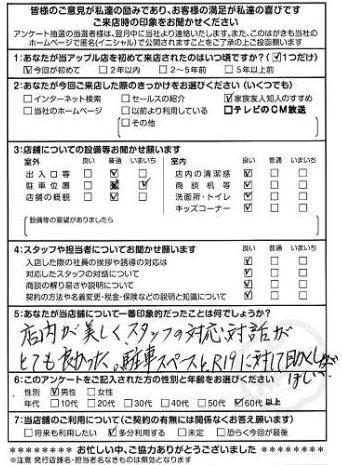 皆様のご意見が私達の励みであり、お客様の満足が私達の喜びです
ご来店時の印象をお聞かせください
アンケート抽選の当選者様は、翌月中に当社より連絡いたします。また、このはがきも当社の
ホームページで匿名(イニシャル)で公開されますことをご了承の上ご投函願います
1:あなたが当アップル店を初めて来店されたのはいつ頃ですか?(☑1つだけ)
☑今回が初めて □2年以内 □2～5年前 □5年以上前
2:あなたが今回ご来店した際のきっかけをお選びください(いくつでも)
□インターネット検索 □セールスの紹介 ☑家族友人知人のすすめ
□当社のホームページ □以前より利用している □テレビのCM放送
□その他
3:店舗についての設備等お聞かせ願います
室外 良い 普通 いまいち 室内 良い 普通 いまいち
出入口等 □ ☑ □ 店内の清潔感 ☑ □ □
駐車位置 □ ☑ ☑ 商談机等 ☑ □ □
店舗の概観 □ ☑ □ 洗面所・トイレ ☑ □ □
キッズコーナー ☑ □ □
設備等の要望がありましたら
4:スタッフや担当者についてお聞かせ願います 良い 普通 いまいち
入店した際の社員の挨拶や誘導の対応は ☑ □ □
対応したスタッフの対話について ☑ □ □
商談の解り易さや説明について ☑ □ □
契約の方法や名義変更・税金・保険などの説明と知識について ☑ □ □
5:あなたが当店舗について一番印象的だったことは何でしょうか?
店内が美しくスタッフの対応、対話が
とても良かった。駐車スペースと、R19に対して
ほしい。
6:このアンケートをご記入された方の性別と年齢をお選びください
性別 ☑男性 □女性
年代 □10代 □20代 □30代 □40代 □50代 ☑60代以上
7:当店舗のご利用について(ご契約の有無には関係なくお答え願います)
□将来も利用したい ☑多分利用する □未定 □恐らく今回が最後
******** お忙しい中、ご協力ありがとうございました ********
※注意 発行店舗名・担当者名なきものは無効となります